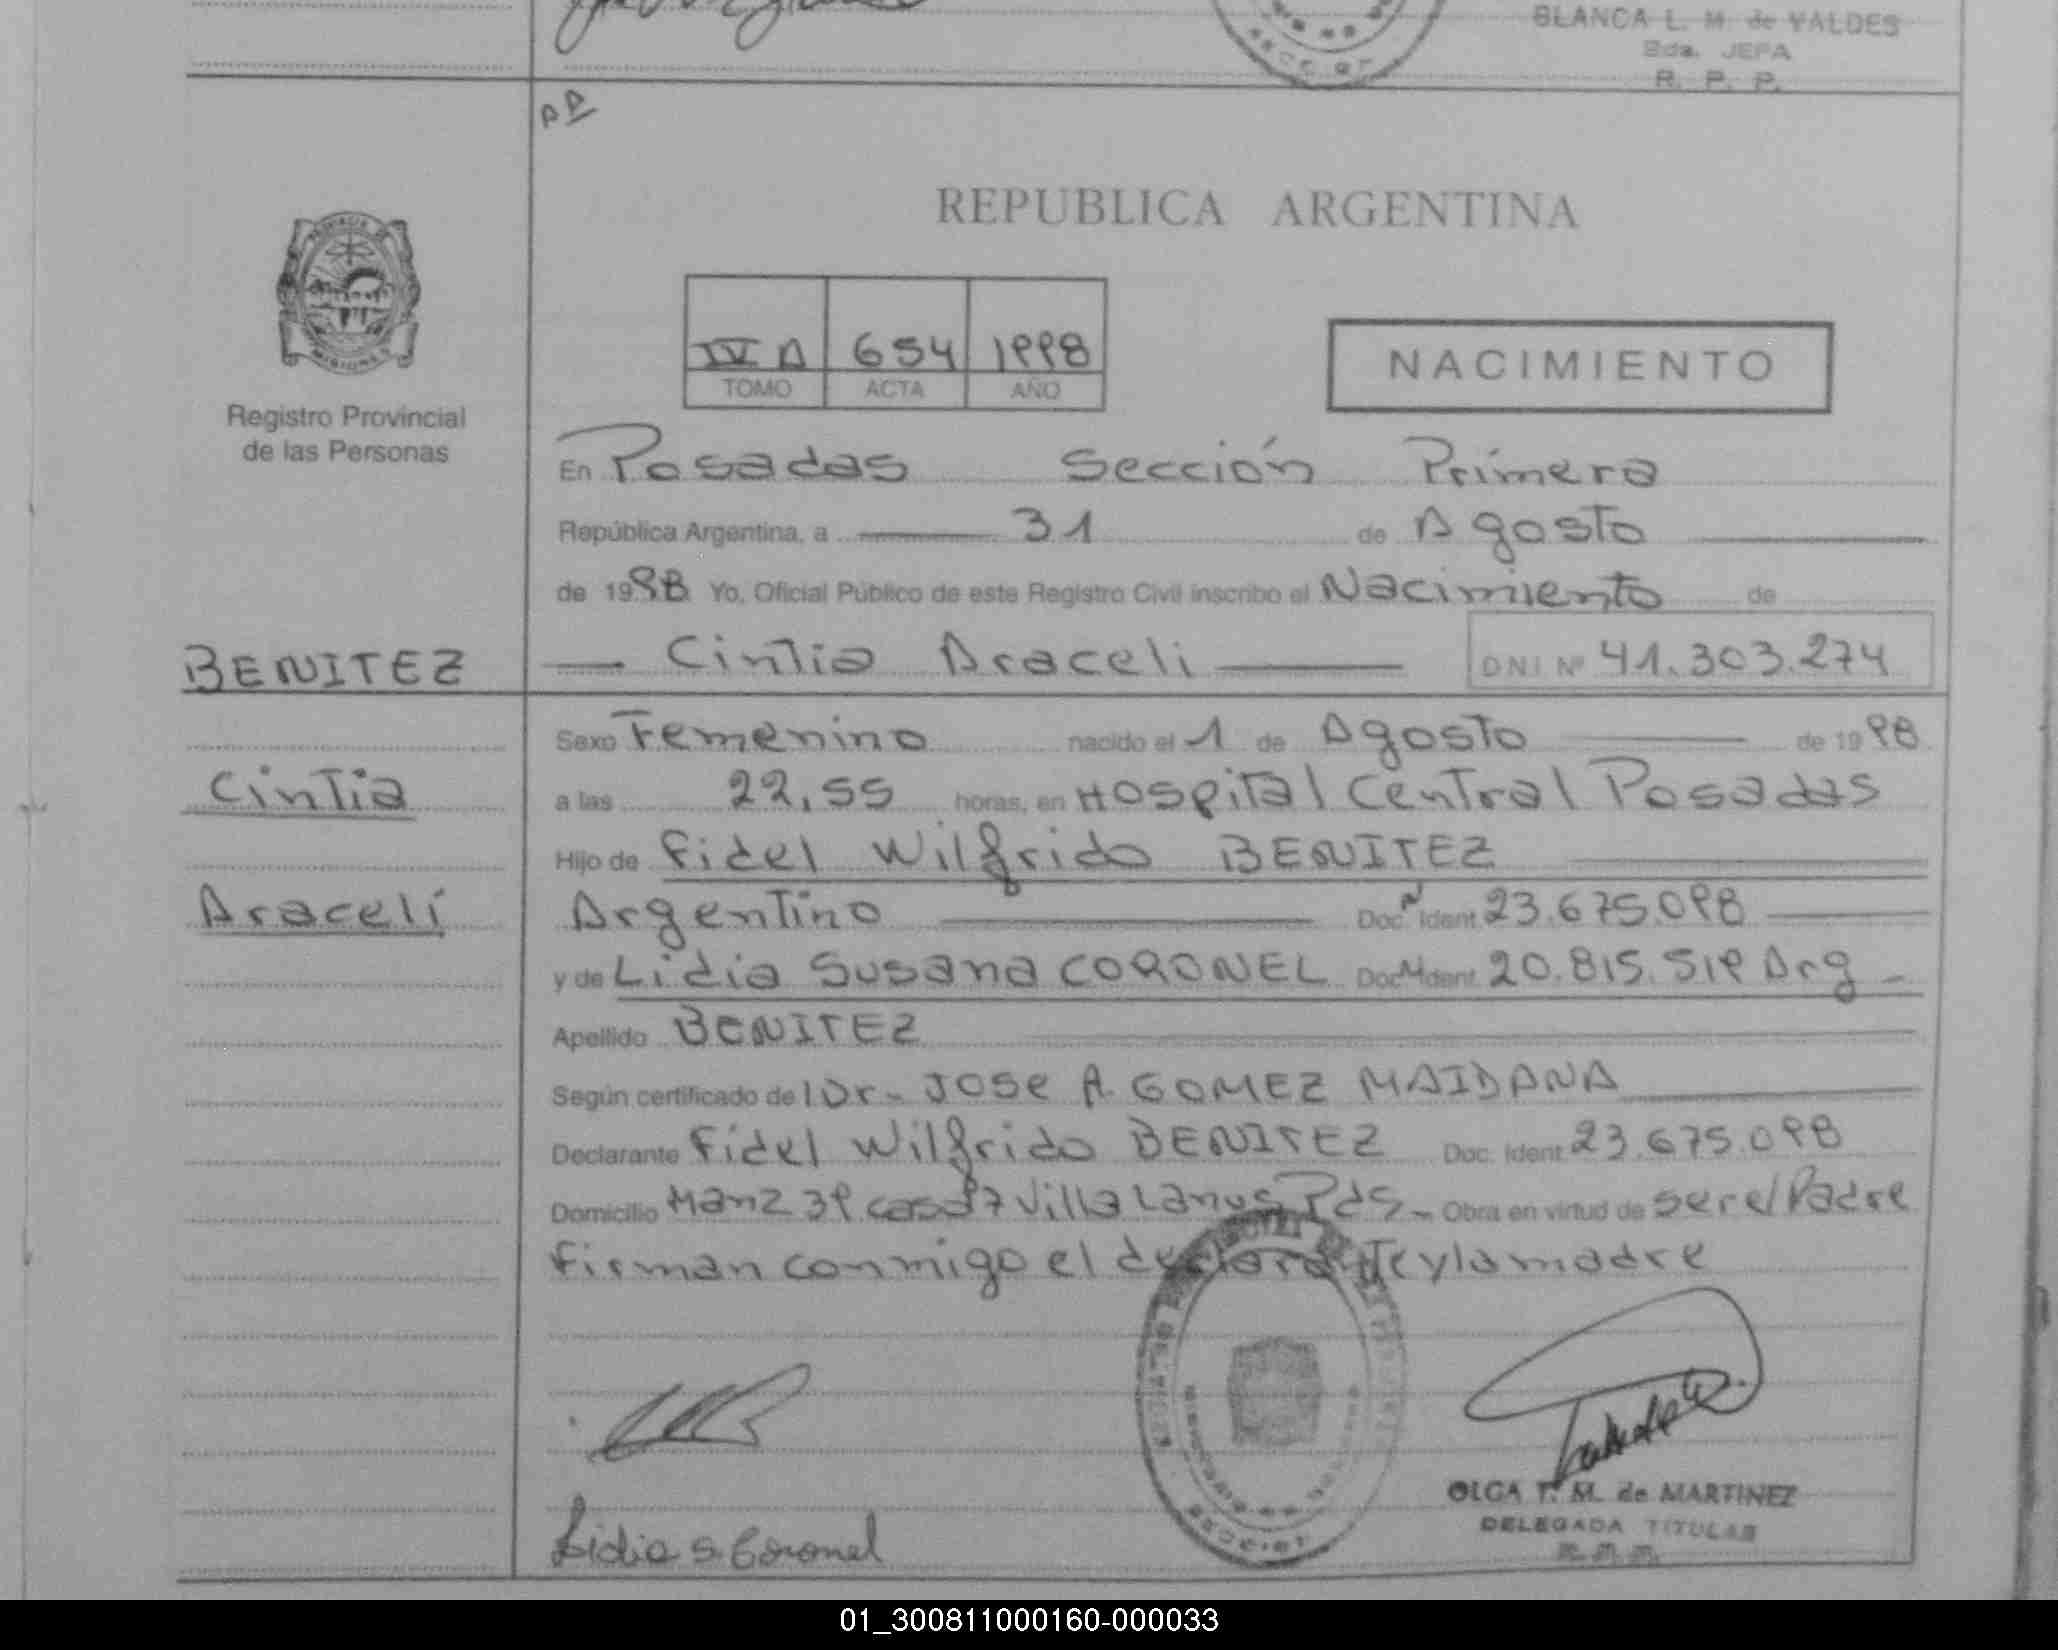 BLANCA L. M. de VALDES
Sda. JEFA
R. P. P.
REPUBLICA ARGENTINA
IV A 654 1998
TOMO ACTA AÑO
NACIMIENTO
PROVINCIA DE
MISIONES
Registro Provincial
de las Personas
En Posadas Sección Primera
República Argentina, a 31 de Agosto
de 1998 Yo, Oficial Público de este Registro Civil inscribo el Nacimiento de
BENITEZ
Cintia Araceli DNI Nº 41.303.274
Sexo Femenino nacido el 1 de Agosto de 1998
Cintia
a las 22,55 horas, en Hospital Central Posadas
Hijo de Fidel Wilfrido BENITEZ
Araceli
Argentino Doc. Ident. 23.675.098
y de Lidia Susana CORONEL Doc. Ident. 20.815.519 Arg
Apellido BENITEZ
Según certificado de l Dr- JOSE A. GOMEZ MAIDANA
Declarante Fidel Wilfrido BENITEZ Doc. Ident. 23.675.098
Domicilio Manz 39 casa 7 Villa Lanus Pds- Obra en virtud de ser el Padre
firman conmigo el declarante y la madre
Lidia S. Coronel
OLGA T. M. de MARTINEZ
DELEGADA TITULAR
01_300811000160-000033